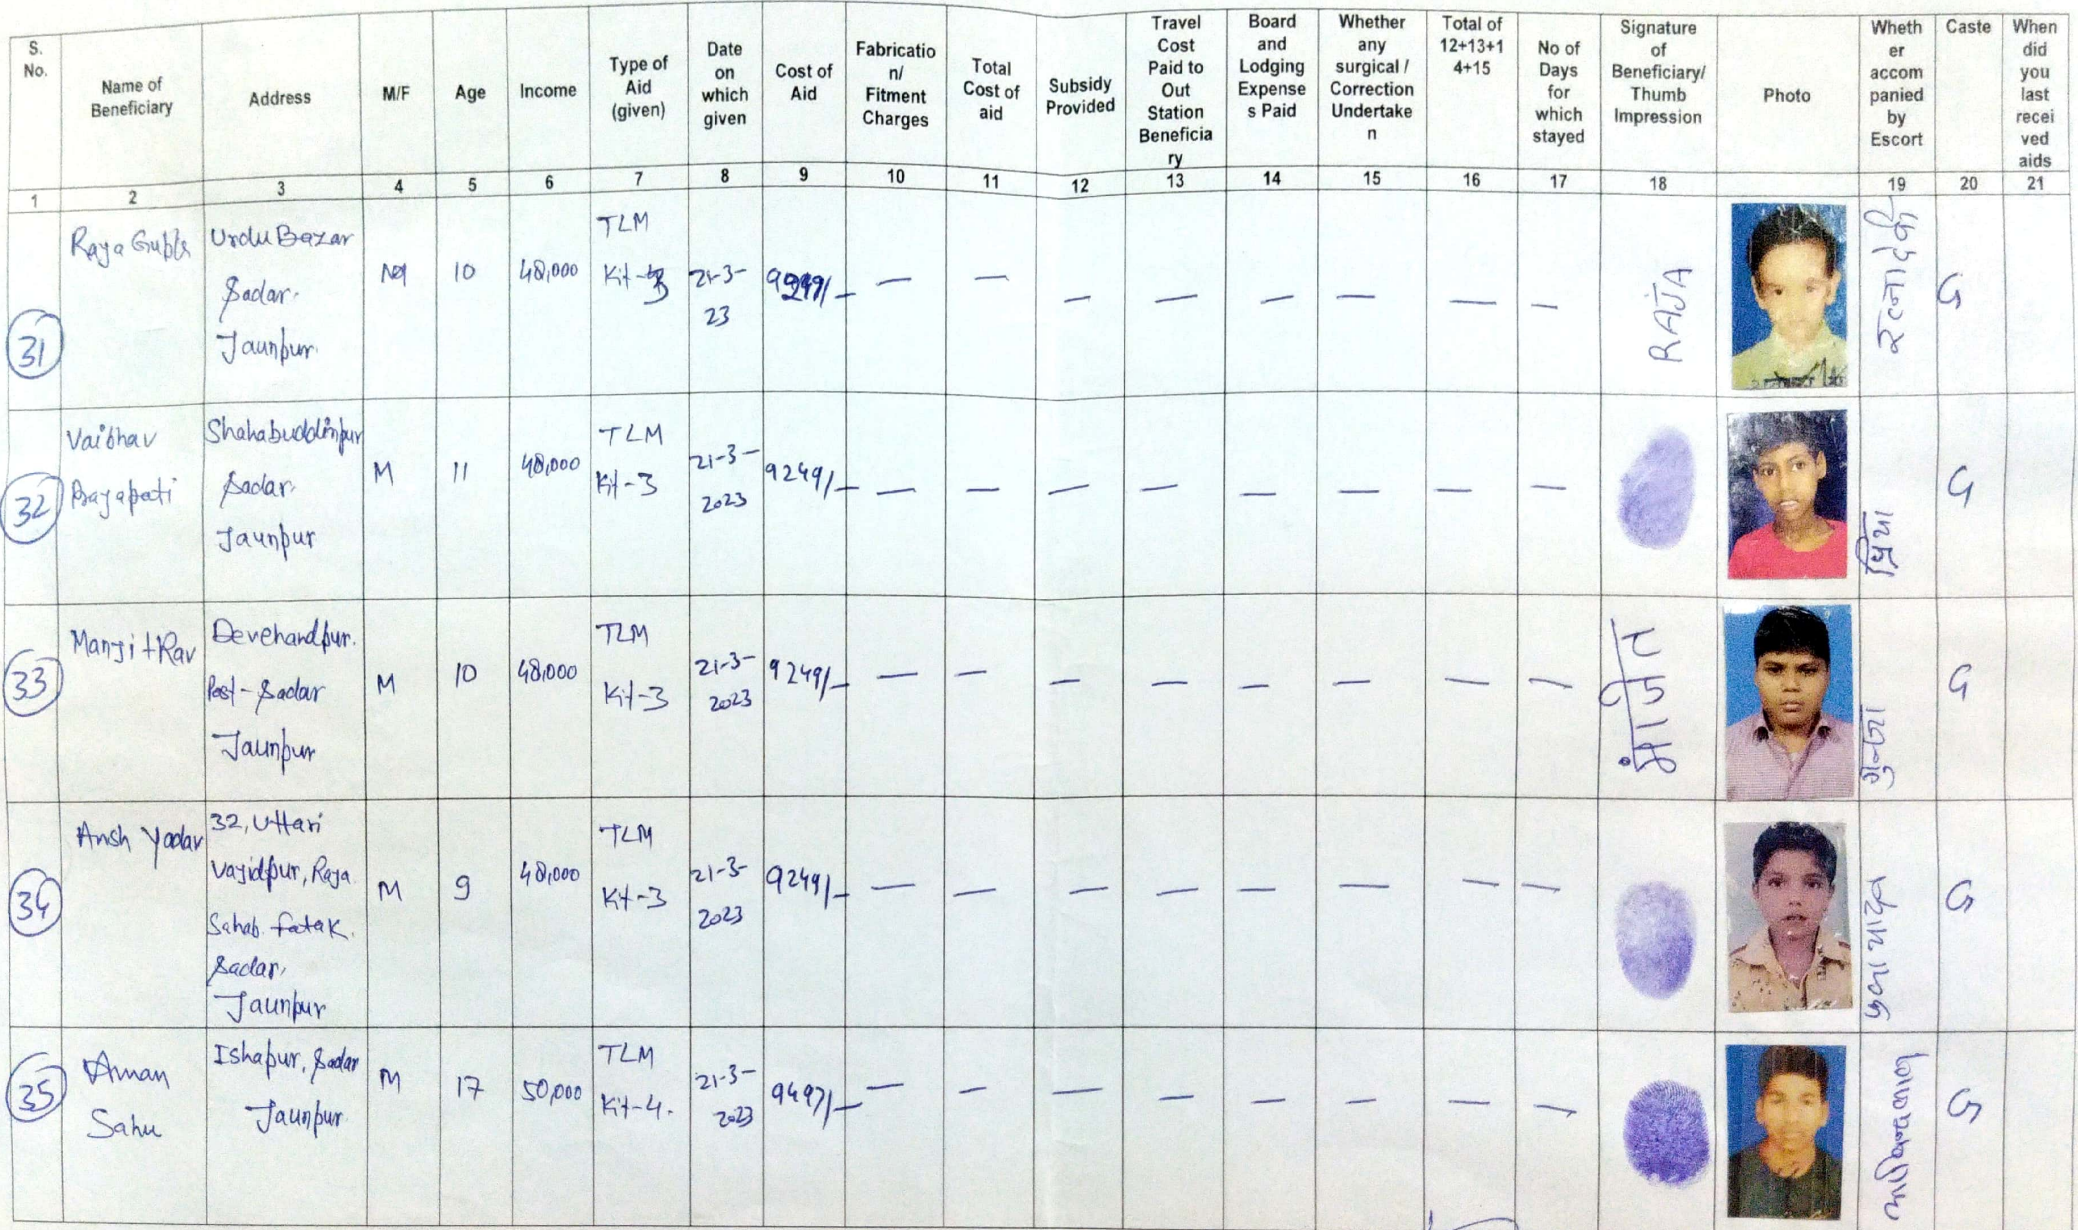 S. No.
Name of Beneficiary
Address
M/F
Age
Income
Type of Aid (given)
Date on which given
Cost of Aid
Fabricatio n/ Fitment Charges
Total Cost of aid
Subsidy Provided
Travel Cost Paid to Out Station Beneficia ry
Board and Lodging Expense s Paid
Whether any surgical / Correction Undertake n
Total of 12+13+1 4+15
No of Days for which stayed
Signature of Beneficiary/ Thumb Impression
Photo
Wheth er accom panied by Escort
Caste
When did you last recei ved aids
1 2 3 4 5 6 7 8 9 10 11 12 13 14 15 16 17 18 19 20 21
31
Raja Gupta
Urdu Bazar
Sadar,
Jaunpur.
M
10
48,000
TLM
Kit-3
21-3-
23
9249/-
— — — — — — — —
RAJA
G
32
Vaibhav
Prajapati
Shahabuddinpur
Sadar,
Jaunpur
M
11
48,000
TLM
Kit-3
21-3-
2023
9249/-
— — — — — — — —
प्रिया
G
33
Manjit Rav
Devchandpur.
Post-Sadar
Jaunpur
M
10
48,000
TLM
Kit-3
21-3-
2023
9249/-
— — — — — — — —
G
34
Ansh Yadav
32, Uttari
Vajidpur, Raja
Sahab fatak.
Sadar,
Jaunpur
M
9
48,000
TLM
Kit-3
21-3-
2023
9249/-
— — — — — — — —
यादव
G
35
Aman
Sahu
Ishapur, Sadar
Jaunpur
M
17
50,000
TLM
Kit-4.
21-3-
2023
9497/-
— — — — — — — —
G